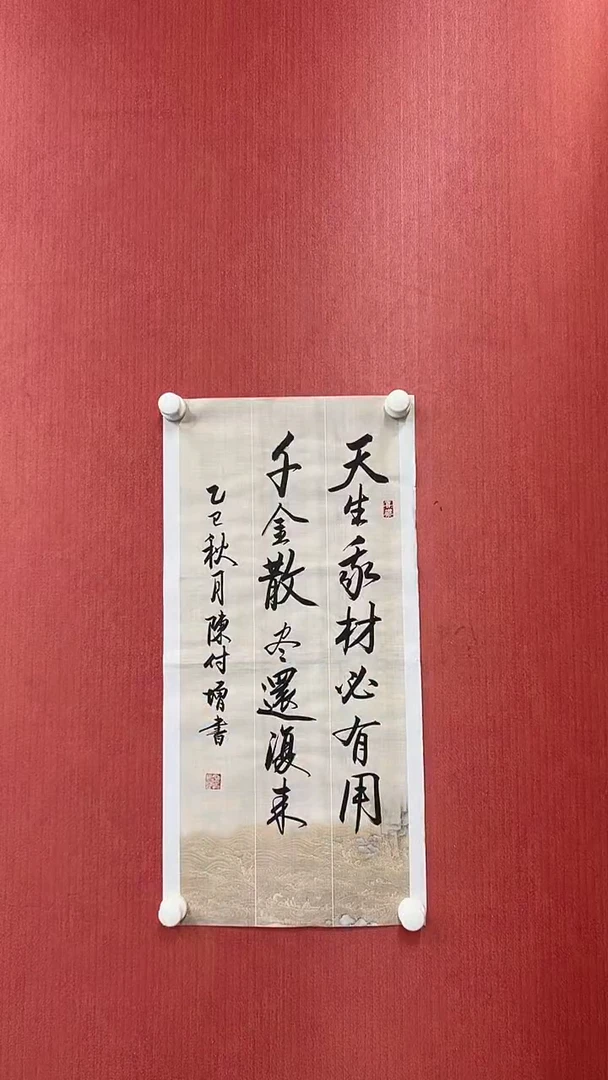 天生我材必有用
千金散尽還復来
乙巳秋月陳付增書